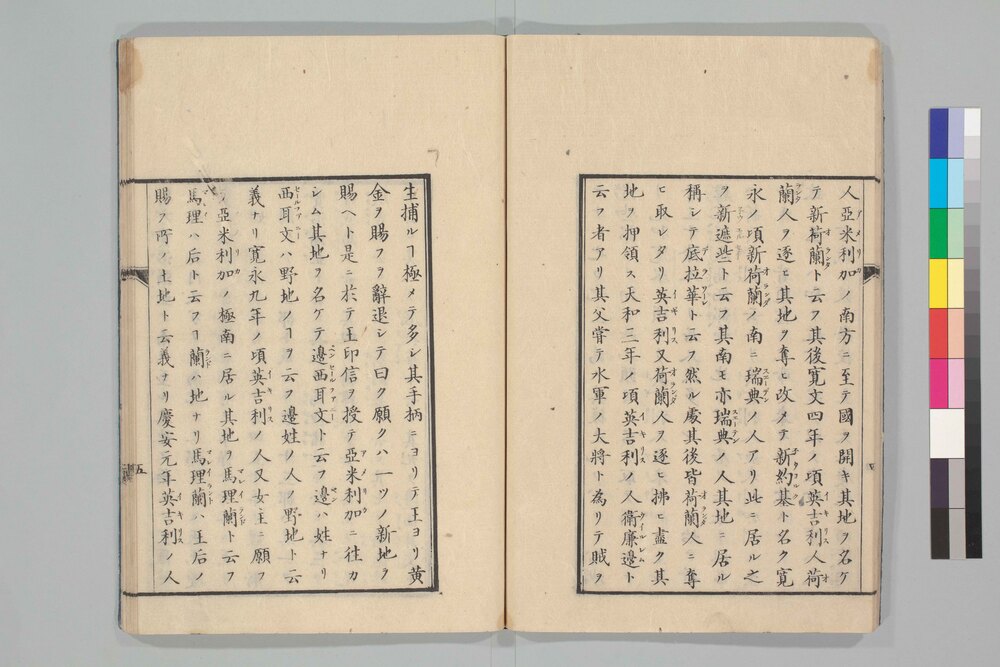 人亞米利加ノ南方ニ至テ國ヲ開キ其地ヲ名ケ
テ新荷蘭ト云フ其後寛文四年ノ頃英吉利人荷
蘭人ヲ逐ヒ其地ヲ奪ヒ改メテ新約基ト名ク寛
永ノ頃新荷蘭ノ南ニ瑞典ノ人アリ此ニ居ル之
ヲ新遮些ト云フ其南モ亦瑞典ノ人其地ニ居ル
稱シテ底拉華ト云フ然ル處其後皆荷蘭人ニ奪
ヒ取レタリ英吉利又荷蘭人ヲ逐ヒ拂ヒ盡ク其
地ヲ押領ス天和三年ノ頃英吉利ノ人衛廉邊ト
云フ者アリ其父嘗テ水軍ノ大將ト為リテ賊ヲ
生捕ルヿ極メテ多シ其手柄ニヨリテ王ヨリ黄
金ヲ賜フヲ辭退シテ曰ク願クハ一ツノ新地ヲ
賜ヘト是ニ於テ王印信ヲ授テ亞米利加ニ往カ
シム其地ヲ名ケテ邊西耳文ト云フ邊ハ姓ナリ
西耳文ハ野地ノヿヲ云フ邊姓ノ人ノ野地ト云
義ナリ寛永九年ノ頃英吉利ノ人又女主ニ願フ
テ亞米利加ノ極南ニ居ル其地ヲ馬理蘭ト云フ
馬理ハ后ト云フヿ蘭ハ地ナリ馬理蘭ハ王后ノ
賜フ所ノ土地ト云義ナリ慶安元年英吉利ノ人
五